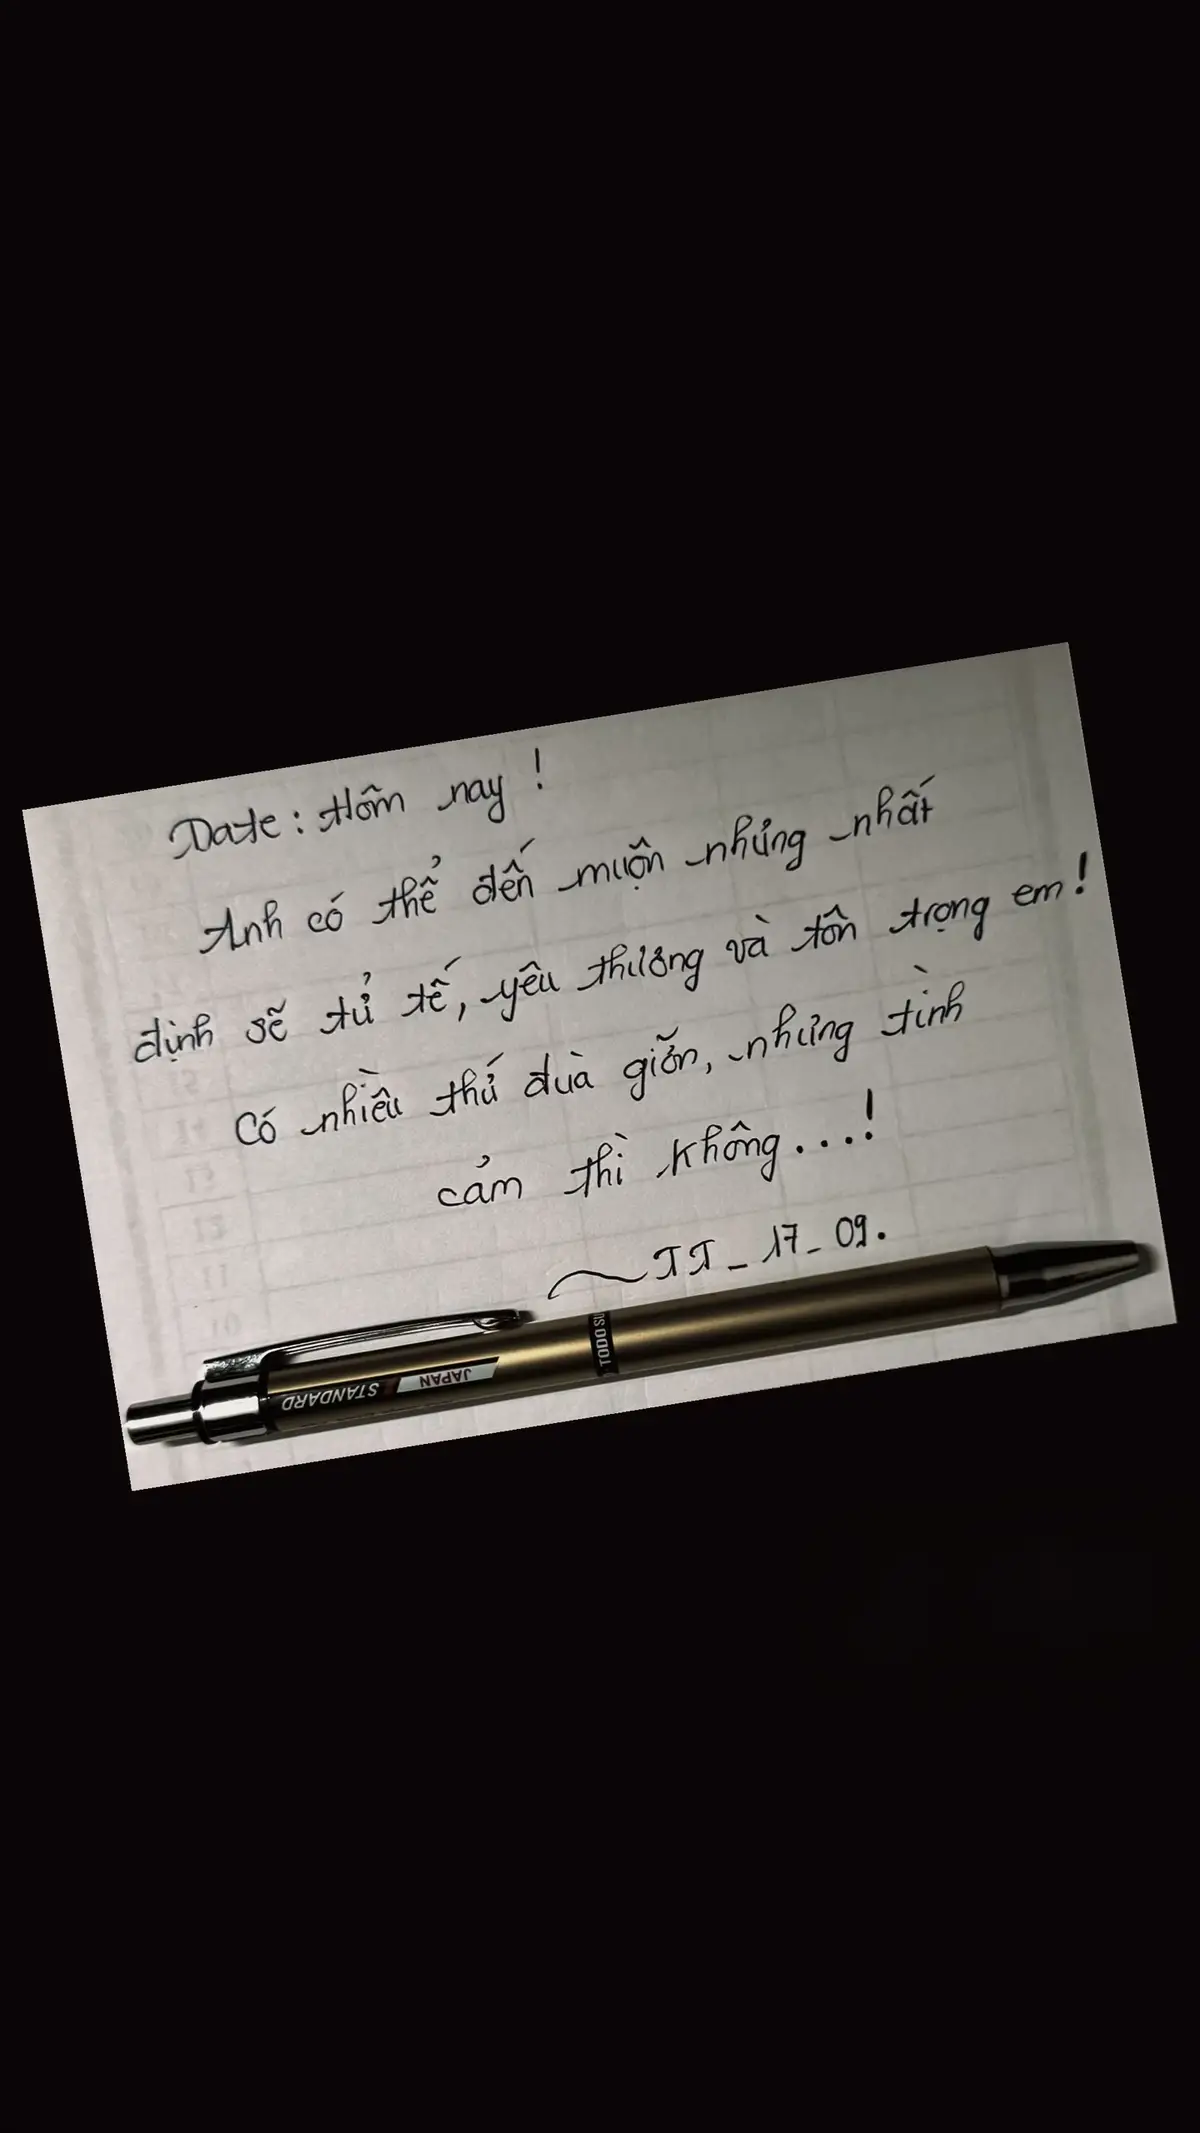 Date: Hôm nay!
Anh có thể đến muộn nhưng nhất
định sẽ tử tế, yêu thương và tôn trọng em!
Có nhiều thứ đùa giỡn, nhưng tình
cảm thì không...!
TT_17_09.
TODO SU
STANDARD JAPAN